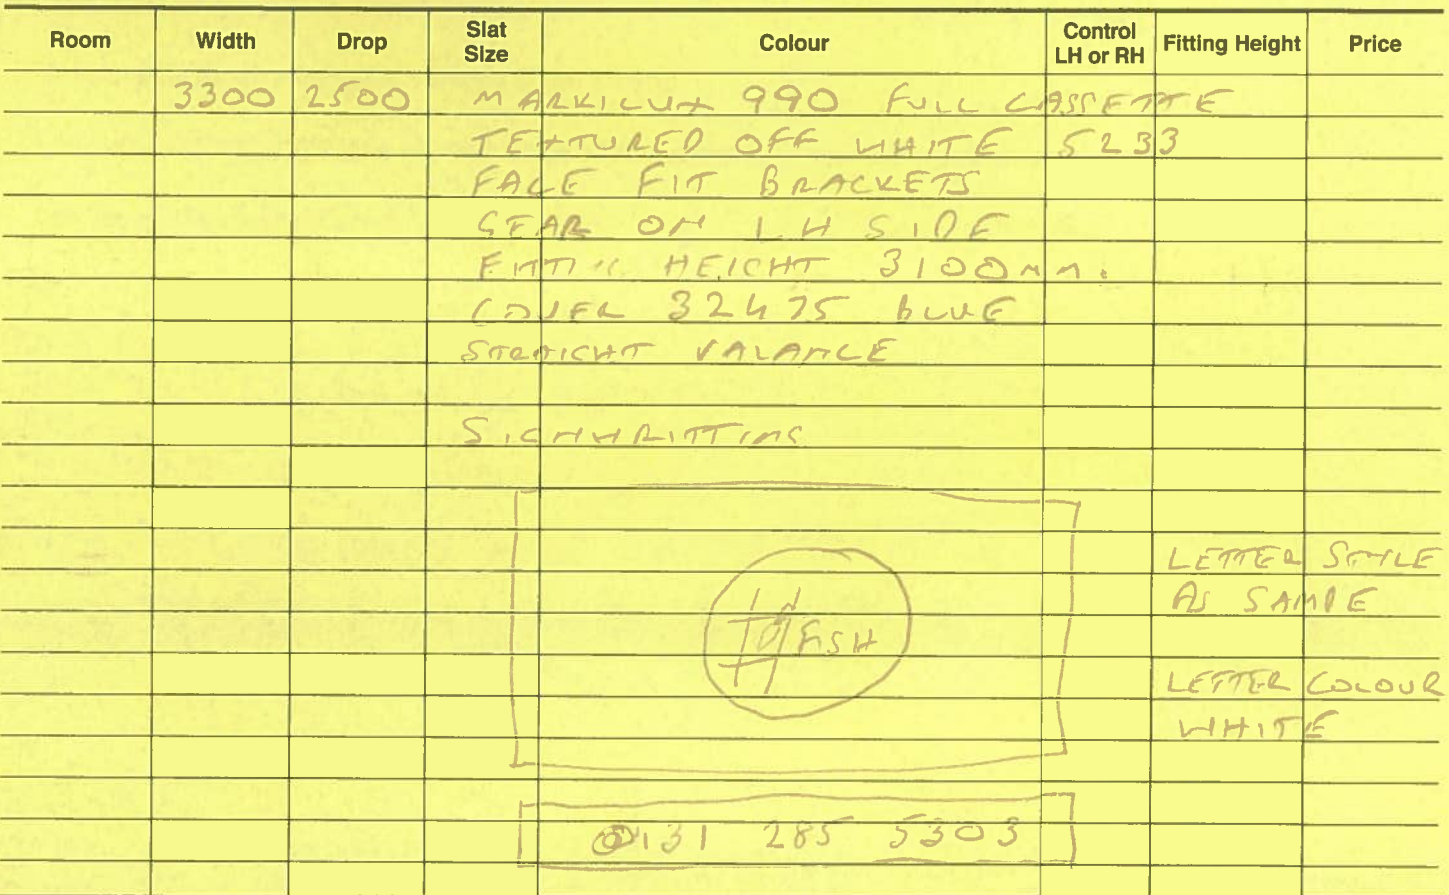 Room Width Drop Slat Size Colour Control LH or RH Fitting Height Price
3300 2500 MARKILUX 990 FULL CASSETTE
TEXTURED OFF WHITE 5233
FACE FIT BRACKETS
GEAR ON LH SIDE
FITTING HEIGHT 3100MM.
COVER 32475 BLUE
STRAIGHT VALANCE
SIGNWRITTING
LETTER STYLE
AS SAMPLE
FISH
LETTER COLOUR
WHITE
0131 285 5303